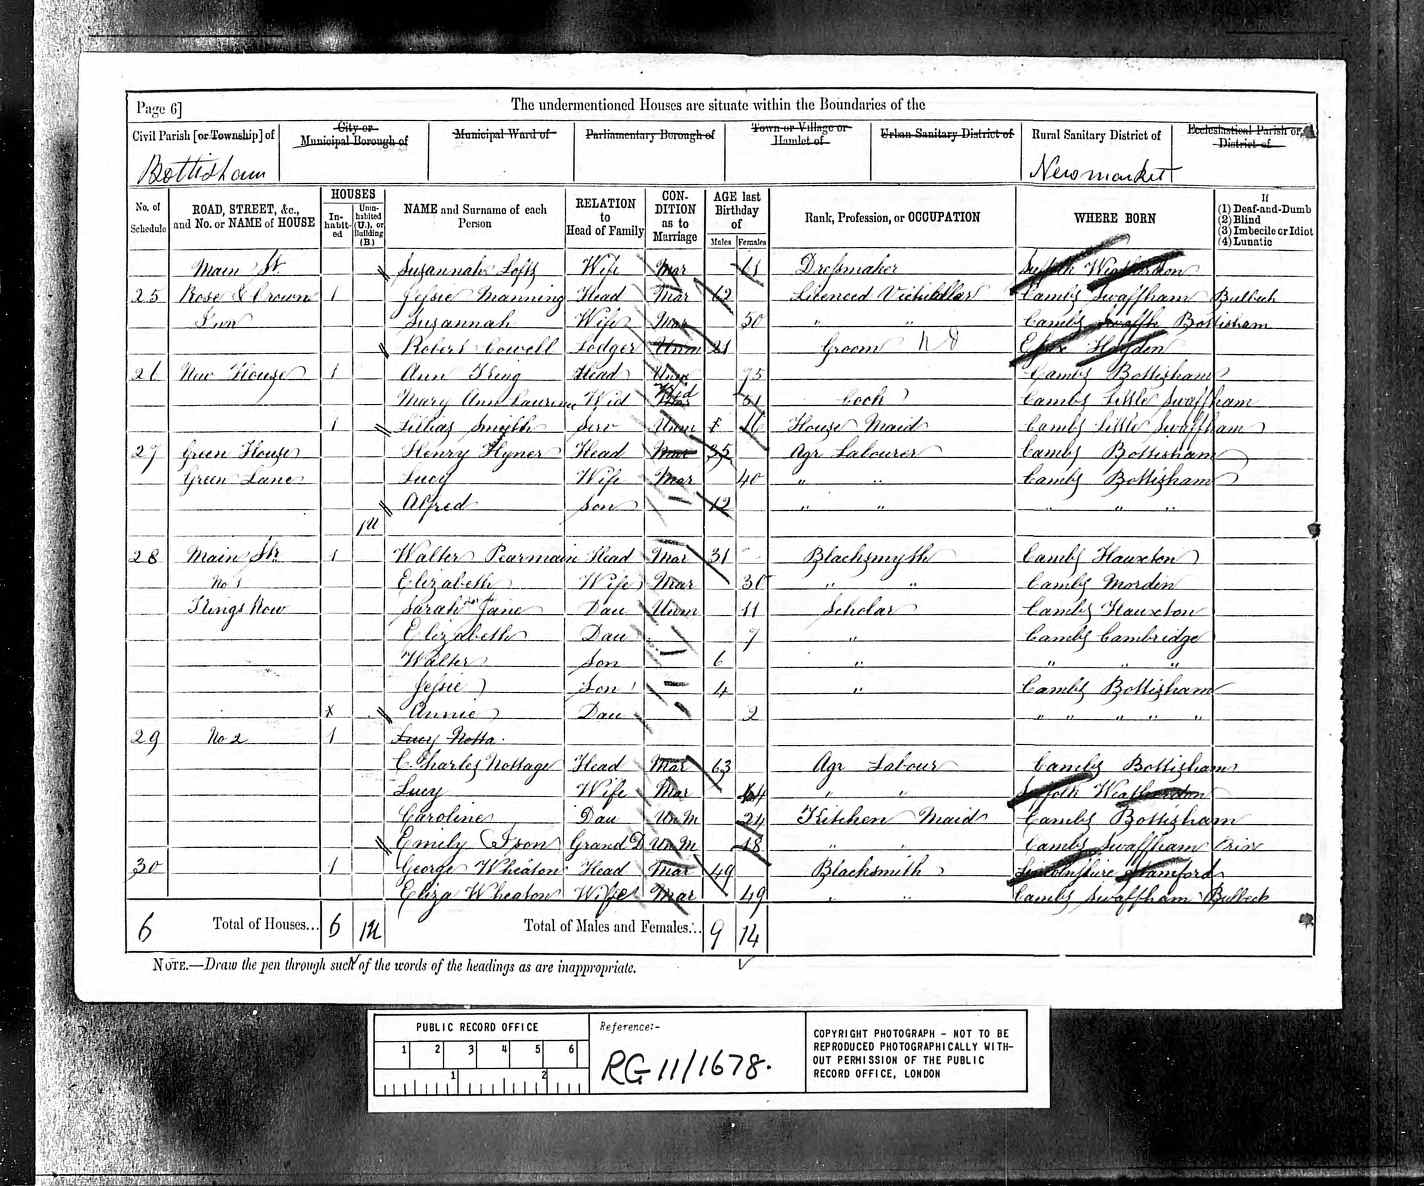 Page 6] The undermentioned Houses are situate within the Boundaries of the
Civil Parish [or Township] of City or Municipal Borough of Municipal Ward of Parliamentary Borough of Town or Village or Hamlet of Urban Sanitary District of Rural Sanitary District of Ecclesiastical Parish or District of
Bottisham Newmarket
No. of Schedule ROAD, STREET, &c., and No. or NAME of HOUSE HOUSES In-habit-ed Unin-habited (U.), or Building (B.) NAME and Surname of each Person RELATION to Head of Family CON-DITION as to Marriage AGE last Birthday of Males Females Rank, Profession, or OCCUPATION WHERE BORN If (1) Deaf-and-Dumb (2) Blind (3) Imbecile or Idiot (4) Lunatic
Main St Suzannah Lofts Wife Mar Dressmaker Suffolk
25 Rose & Crown 1 Jessie Manning Head Mar Licenced Victuallar Cambs Swaffham Bulbeck
Inn Suzannah Wife Mar 30 " " Cambs Bottisham
Robert Cowell Lodger Unm 21 Groom Essex
26 New House 1 Ann King Head Unm 75 Cambs Bottisham
Mary Ann Laurence Wid Wid Cook Cambs Little Swaffham
1 Lillias Smith Serv Unm 16 House Maid Cambs Little Swaffham
27 Green House Henry Flyner Head Mar 35 Agr Labourer Cambs Bottisham
Green Lane Lucy Wife Mar 40 " " Cambs Bottisham
Alfred Son 12 " " " " "
1U
28 Main Str 1 Walter Pearmain Head Mar 31 Blacksmyth Cambs Hauxton
No 1 Elizabeth Wife Mar 30 " " Cambs Morden
Kings Row Sarah Jane Dau Unm 11 Scholar Cambs Hauxton
Elizabeth Dau 7 " Cambs Cambridge
Walter Son 6 " " " "
Jessie Son 4 " Cambs Bottisham
x Annie Dau 2 " " " " "
29 No 2 1 Lucy Notta
C Charles Nottage Head Mar 63 Agr Labour Cambs Bottisham
Lucy Wife Mar 64 " " Suffolk
Caroline Dau UnM 24 Kitchen Maid Cambs Bottisham
Emily Ison Grand D UnM 18 " " Cambs Swaffham Prior
30 1 George Wheaton Head Mar 49 Blacksmith Lincolnshire Stamford
Eliza Wheaton Wife Mar 49 " " Cambs Swaffham Bulbeck
6 Total of Houses... 6 1U Total of Males and Females... 9 14
NOTE.—Draw the pen through such of the words of the headings as are inappropriate.
PUBLIC RECORD OFFICE
1 2 3 4 5 6
1 2
Reference:-
RG 11/1678.
COPYRIGHT PHOTOGRAPH - NOT TO BE
REPRODUCED PHOTOGRAPHICALLY WITH-
OUT PERMISSION OF THE PUBLIC
RECORD OFFICE, LONDON